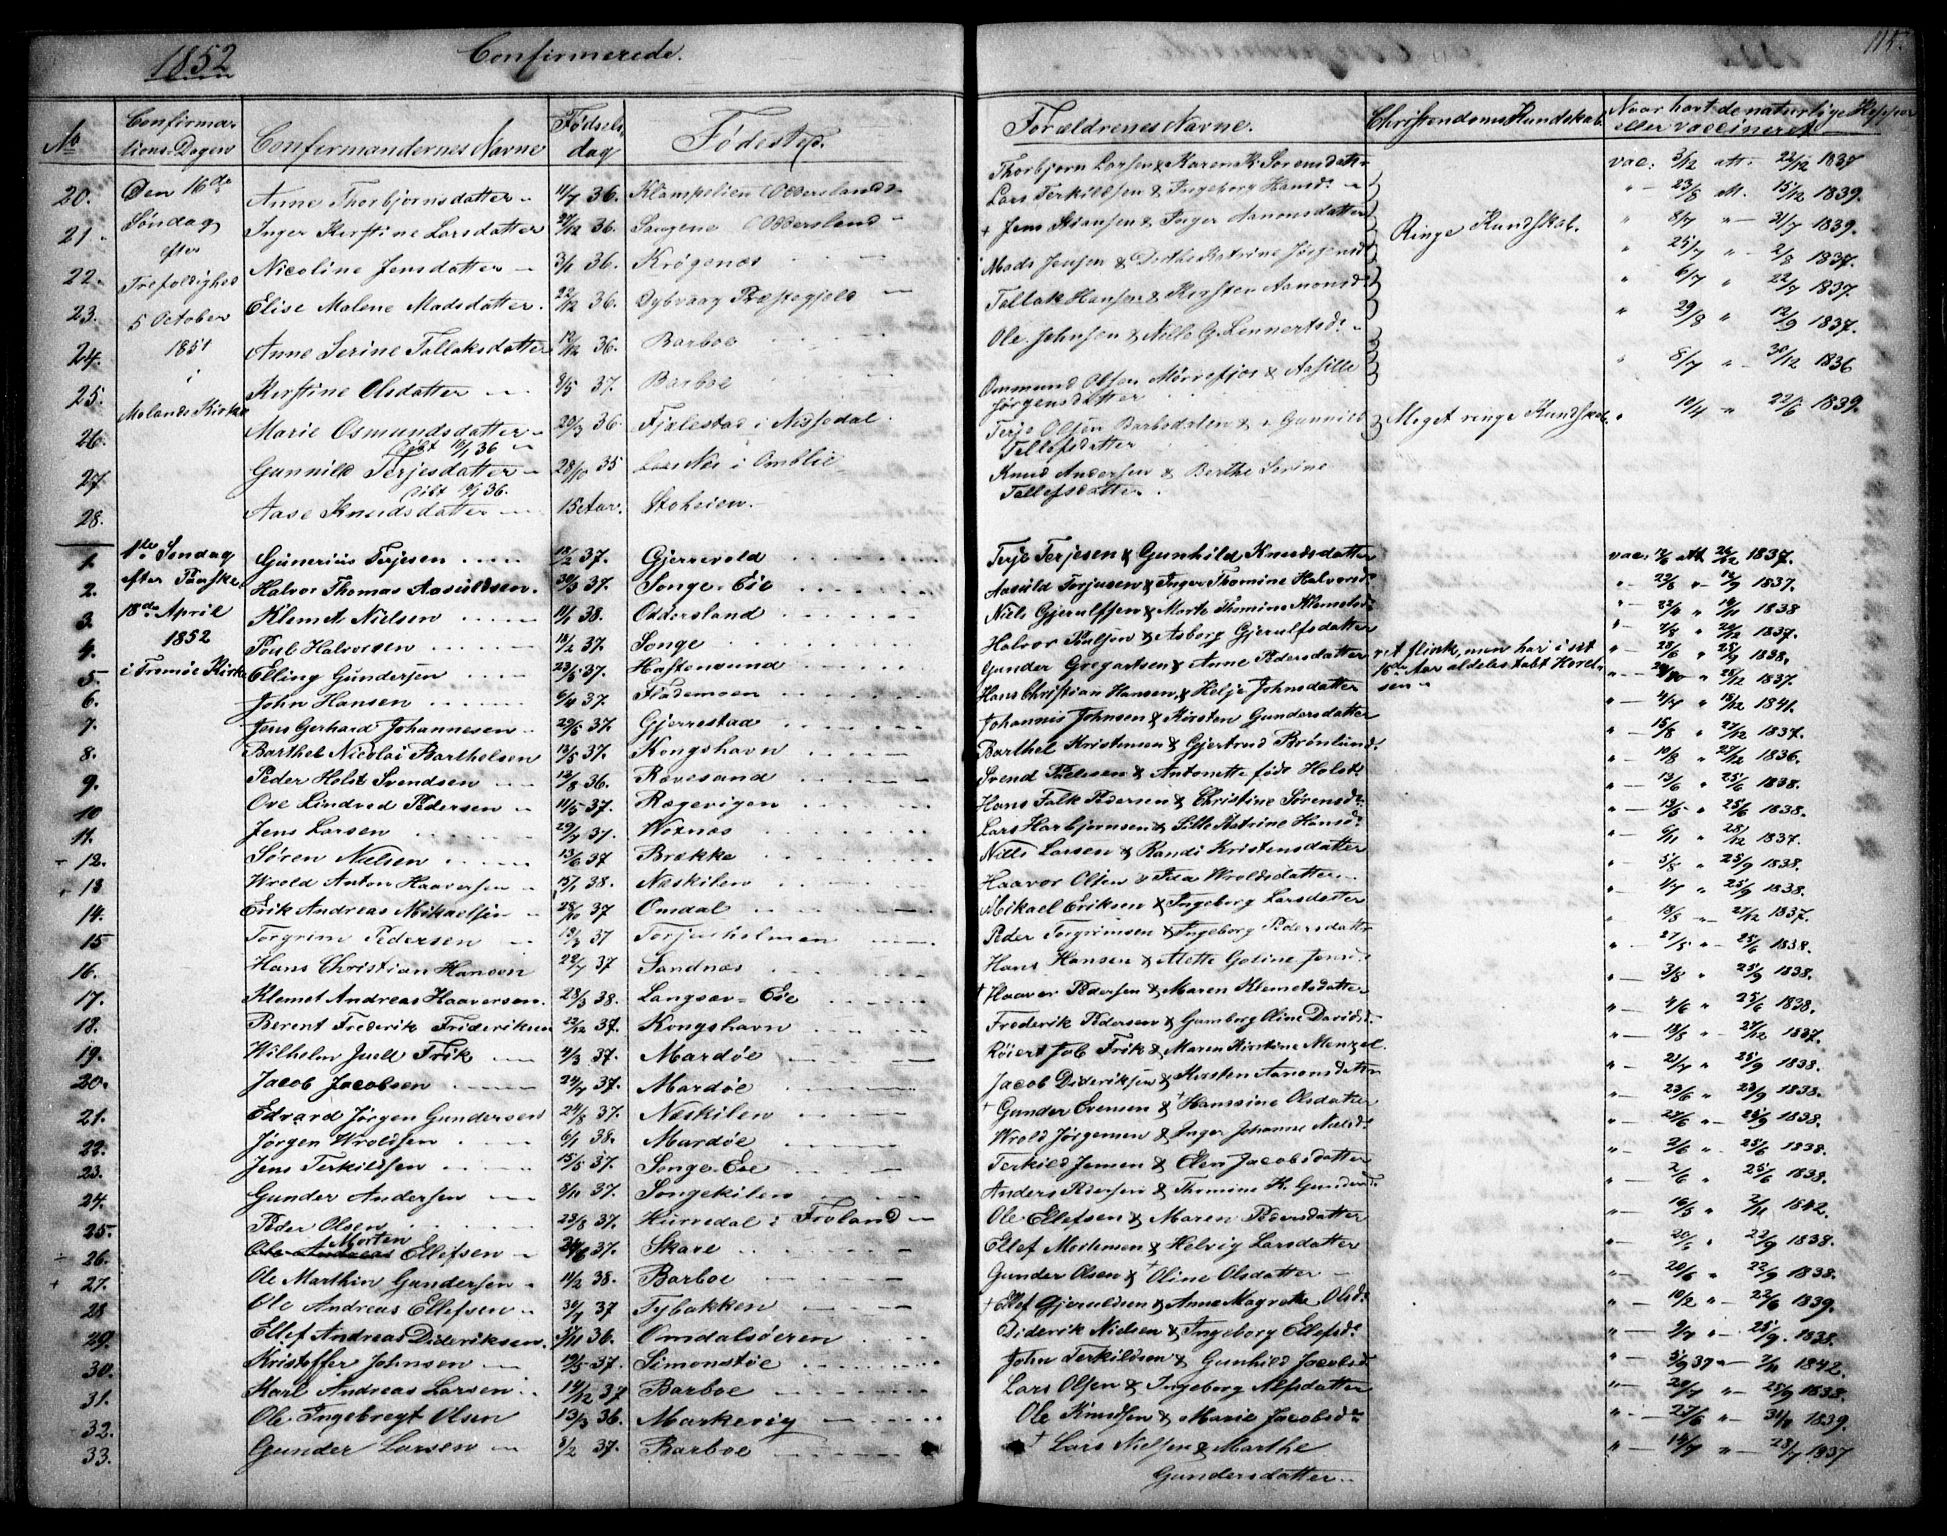 1852
Confirmerede.
115.
No
Confirmations-Dagen
Confirmandernes Navne
Fødsels dag
Fødested.
Forældrenes Navne.
Christendoms Kundskab.
Naar havt de naturlige Kopper eller vaccineret
Den 16de Søndag efter Trefoldighed 5 October 1851 i Molands Kirke
20. Anne Thorbjørnsdatter 11/7 36. Klampelien Oddersland Thorbjørn Larsen & Karen K. Sørensdatter vac. 3/12 att. 22/12 1837
21. Inger Kirstine Larsdatter 27/12 36. Songene Oddersland Lars Terkildsen & Ingeborg Hansd. 23/8 att. 15/12 1839.
22. Nicoline Jensdatter 3/1 36. Krøgenæs + Jens & Inger Aanonsdatter 8/7 21/7 1839.
23. Elise Malene Madsdatter. 22/12 36. Dybvaag Præstegjeld Mads Jensen & Dorthe Katrine 25/7 2/8 1837.
24. Anne Serine Tallaksdatter 12/12 36. Barboe Tallak Hansen & Kirsten Aanonsd. 6/7 22/7 1837.
25. Kirstine Olsdatter 9/5 37. Barboe Ole Johnsen & Nille G. Lennertsd. 29/8 12/9 1837.
Ringe Kundskab.
26. Marie Osmundsdatter 20/3 36 Fjelestad i Nissedal. Ommund Olsen Mørrefjør & Aasille Jørgensdatter 8/7 30/12 1836
døbt 10/1 36
27. Gunnild Terjesdatter 28/10 35 i Omblie Terje Olsen Barbodalen & Gunnild Tellefsdatter Meget ringe Kundskab. 10/4 22/6 1839.
døbt 36.
28. Aase Knudsdatter 15 Aar. Stoheien. Knud Andersen & Berthe Serine Tellefsdatter.
1ste Søndag efter Paaske 18de April 1852 i Tromøe Kirke
1. Gunerius Terjesen 18/2 37. Gjerrevold Terje Terjesen & Gunhild Knudsdatter vac. 12/6 att 26/12 1837.
2. Halvor Thomas Aasuldsen. 30/3 37. Songe-Eie Aasuld Torjusen & Inger Thomine Halvorsd. 22/8 12/9 1837.
3. Klemet Nielsen 11/1 38. Oddersland Niels Gjerulfsen & Marte Thomine Klemetsd. 19/10 1838
4. Poul Halvorsen 18/2 37. Songe Halvor Poulsen & Asborg Gjerulfsdatter 7/8 20/12 1837.
5. Elling Gundersen 23/5 37. Haftensund Gunder Gregartsen & Anne Pedersdatter ret flink, men har i sit 16de Aar aldeles tabt Hørelsen 28/6 25/9 1838.
6. John Hansen 6/4 37. Fridemoen Hans Christian Hansen & Helje Johnsdatter 26/12 1837.
7. Jens Gerhard Johannesen 29/6 37. Gjerrestad Johannis Johnsen & Kirsten Gundersdatter 4/7 15/12 1841.
8. Barthel Nicolai Bartholsen 13/5 37. Kongshavn Barthel Kristensen & Gjertrud Brønlund. 15/8 27/12 1837.
9. Peder Holst Svendsen 12/8 36. Rævesand Svend Pedersen & Antonette født Holst 10/8 27/12 1836.
10 Ove Lindved Pedersen 11/5 37. Rægevigen Hans Falk Pedersen & Christine Sørensd. 13/6 25/6 1838.
11. Jens Larsen 29/7 37. Woxnæs Lars Harbjørnsen & Sille Katrine Hansd. 13/5 25/6 1838.
12. Søren Nielsen 13/6 37 Brække Niels Larsen & Randi Kristensdatter 6/11 28/12 1837.
13 Wrold Anton Haaversen 15/1 38. Næskilen Haavor Olsen & Ida Wroldsdatter 5/8 25/9 1838.
14. Erik Andreas Mikaelsen 28/10 37 Omdal Mikael Eriksen & Ingeborg Larsdatter 4/7 25/9 1838.
15 Torgrim Pedersen 18/3 37 Torjusholmen Peder Torgrimsen & Ingeborg Pedersdatter 18/8 27/12 1837.
16. Hans Christian Hansen 22/7 37 Sandnæs Hans Hansen & Alette Goline Jensd. 27/5 25/6 1838.
17. Klemet Andreas Haaversen. 28/3 38. Langsæv-Eie + Haaver Pedersen & Maren Klemetsdatter 3/8 25/9 1838.
18. Berent Frederik Frideriksen 22/12 37. Kongshavn Frederik Pedersen & Gumborg Oline Davidsd. 4/6 25/6 1838.
19. Wilhelm Juell Frik 4/3 37. Mardøe Røiert Job Frik & Maren Kirstine Menzel. 18/8 27/12 1837.
20. Jacob Jacobsen 24/7 37. Mardøe Jacob Dideriksen & Kirsten Aanonsdatter 21/7 25/9 1838.
21. Edvard Jørgen Gundersen 24/8 37. Næskilen + Gunder Evensen & + Hanssine Olsdatter 23/6 23/9 1838.
22. Jørgen Wroldsen 6/1 38. Mardøe Wrold Jørgensen & Inger Johanne Nielsd. 27/6 25/9 1838.
23. Jens Terkildsen 15/5 37. Songe-Eie Terkild Jensen & Elen Jacobsdatter 2/6 25/6 1838.
24. Gunder Andersen 8/11 37. Songekilen Anders Pedersen & Thomine K. Gundersd. 2/6 25/6 1838.
25. Peder Olsen 23/8 37. Hurredal i Froland Ole Ellefsen & Maren Pedersdatter 16/5 2/11 1842.
26. Ole Andreas Morten Ellefsen 37. Skare Ellef Mortensen & Helvig Larsdatter 20/6 22/9 1838.
27. Ole Marthin Gundersen 11/2 38. Barboe Gunder Olsen & + Oline Olsdatter 20/6 22/9 1838.
28 Ole Andreas Ellefsen 30/7 37 Tybakken + Ellef Gjeruldsen & Anne Magrethe Olsd. 10/2 22/6 1839.
29. Ellef Andreas Dideriksen. 36. Omdalsøeren Diderik Nielsen & Ingeborg Ellefsd. 2/7 25/9 1838.
30. Kristoffer Johnsen 19/5 37. Simonstøe John Terkildsen & Gunhild Jacobsd. 5/9 37 7/11 1842.
31. Karl Andreas Larsen 14/12 37 Barboe Lars Olsen & Ingeborg Alfsdatter 20/7 25/9 1838.
32. Ole Ingebregt Olsen 13/3 36. Markevig Ole Knudsen & Marie Jacobsd. 27/6 1839.
33. Gunder Larsen 8/2 37. Barboe + Lars Nielsen & Marthe Gundersdatter 14/7 23/7 1837